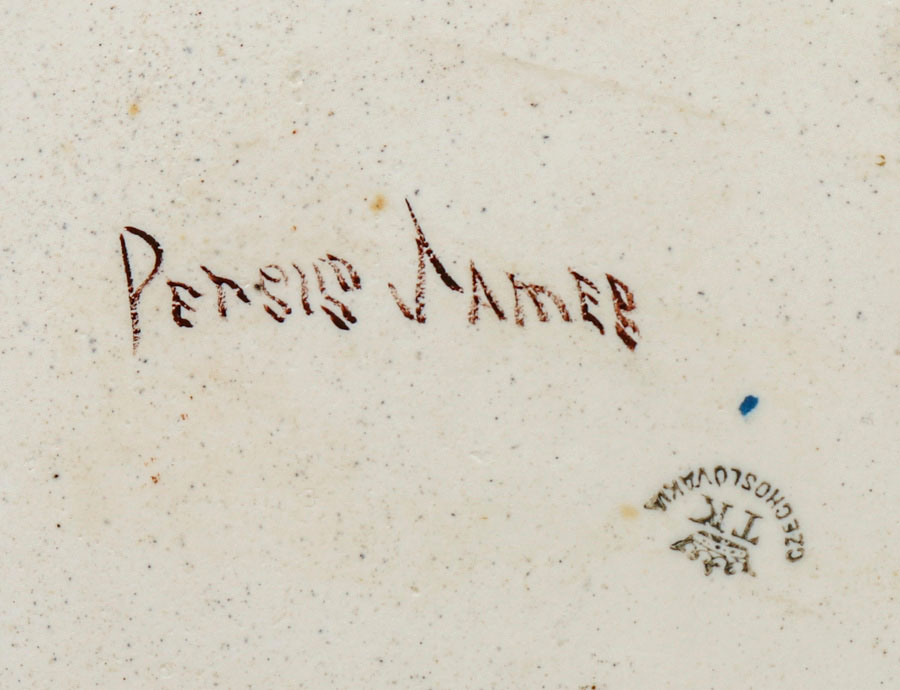 Persis James
CZECHOSLOVAKIA
TK